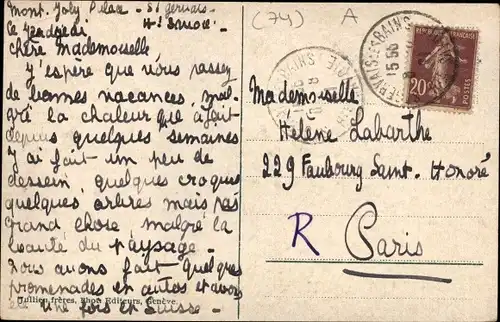 Mont. Joly Palace - St Gervais
Hte Savoie
Le Vendredi
Chère Mademoiselle
J'espère que vous passez
de bonnes vacances, mal-
gré la chaleur que a fait
depuis quelques semaines
J'ai fait un peu de
dessein, quelques croquis
quelques arbres mais pas
grand chose, malgré la
beauté du paysage.
Nous avons fait quelques
promenades en autos et avons
été une fois en Suisse
Jullien frères, Phot. Editeurs, Genève.
(74)
A
ST GERVAIS-LES-BAINS
15 50
REPUBLIQUE FRANÇAISE
20c
POSTES
Mademoiselle
Helene Labarthe
229 Faubourg Saint-Honoré
R
Paris